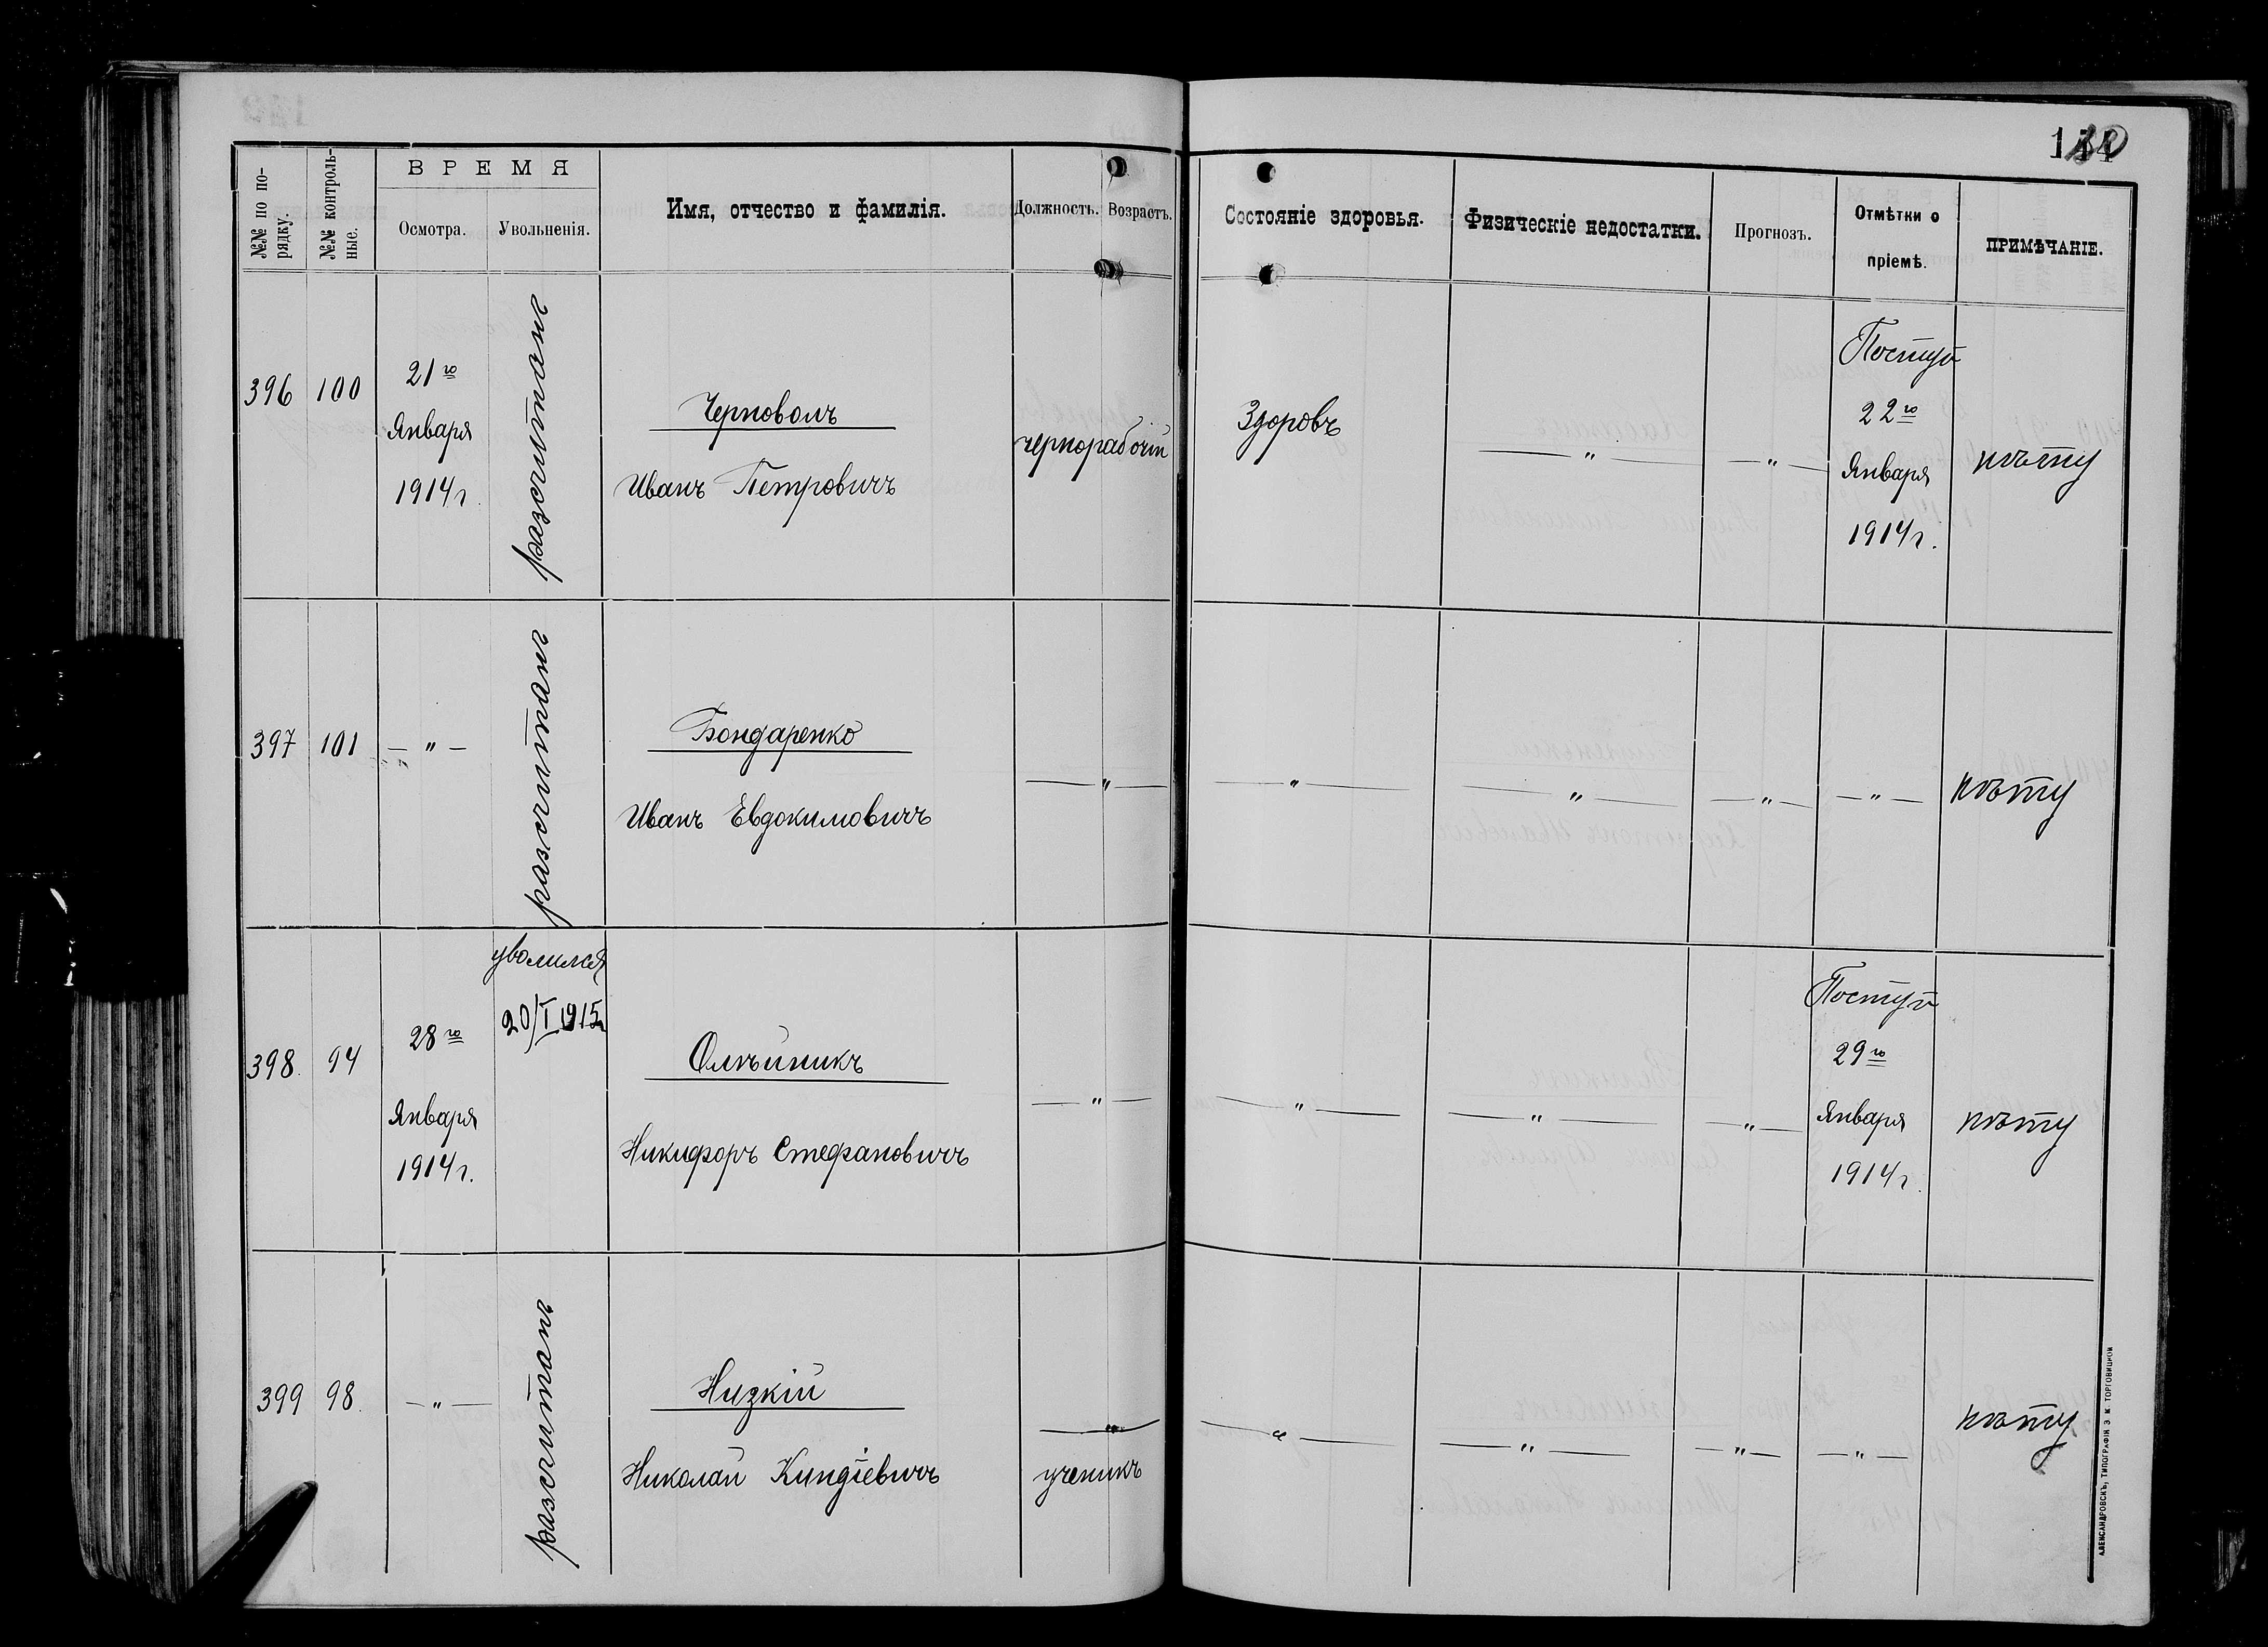 ВРЕМЯ
№№ по по-
рядку.
№№ контроль-
ные.
Осмотра.
Увольненія.
Имя, отчество и фамилія.
Должность.
Возрастъ.
Состояніе здоровья.
Физическіе недостатки.
Прогнозъ.
Отмѣтки о
пріемѣ.
ПРИМѢЧАНІЕ.
396
100
21го
Января
1914 г.
разсчитанъ
Черноволъ
Иванъ Петровичъ
чернорабочій
Здоровъ
— " —
— " —
Поступ
22го
Января
1914 г.
нѣту
397
101
— " —
разсчитанъ
Бондаренко
Иванъ Евдокимовичъ
— " —
— " —
— " —
— " —
— " —
нѣту
398.
94
28го
Января
1914 г.
уволился
20/I 1915г
Олѣйникъ
Никифоръ Стефановичъ
— " —
— " —
— " —
— " —
Поступ
29го
Января
1914 г.
нѣту
399
98.
— " —
разсчитанъ
Низкій
Николай Киндіевичъ
— " —
ученикъ
— " —
— " —
— " —
— " —
нѣту
АЛЕКСАНДРОВСКЪ, ТИПОГРАФІЯ З. М. ТОРГОВИЦКОЙ